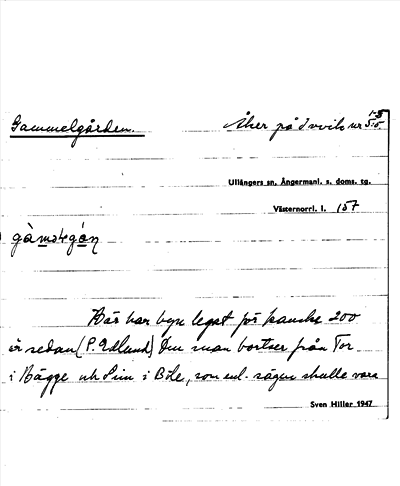 Gammelgården.
Åker på Invik nr 1-3
5:5.
Ullångers sn, Ångermanl. s. doms. tg.
Västernorrl. l. 157
Här har byn legat för kanske 200
år sedan (P. Edlund) Den man bortser från Tor
i Bägge och i Böle, som enl. sägen skulle vara
Sven Hiller 1947